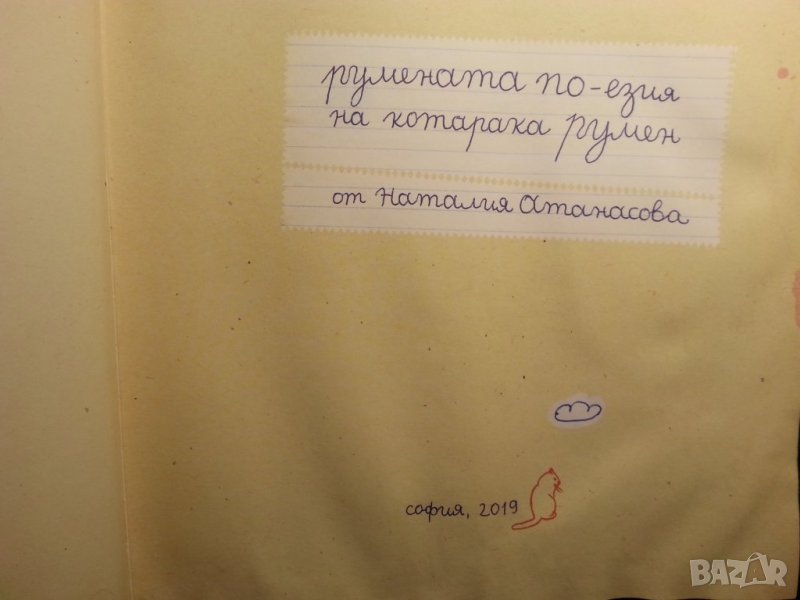 румената по-езия
на котарака румен
от Наталия Атанасова
софия, 2019
BAZAR